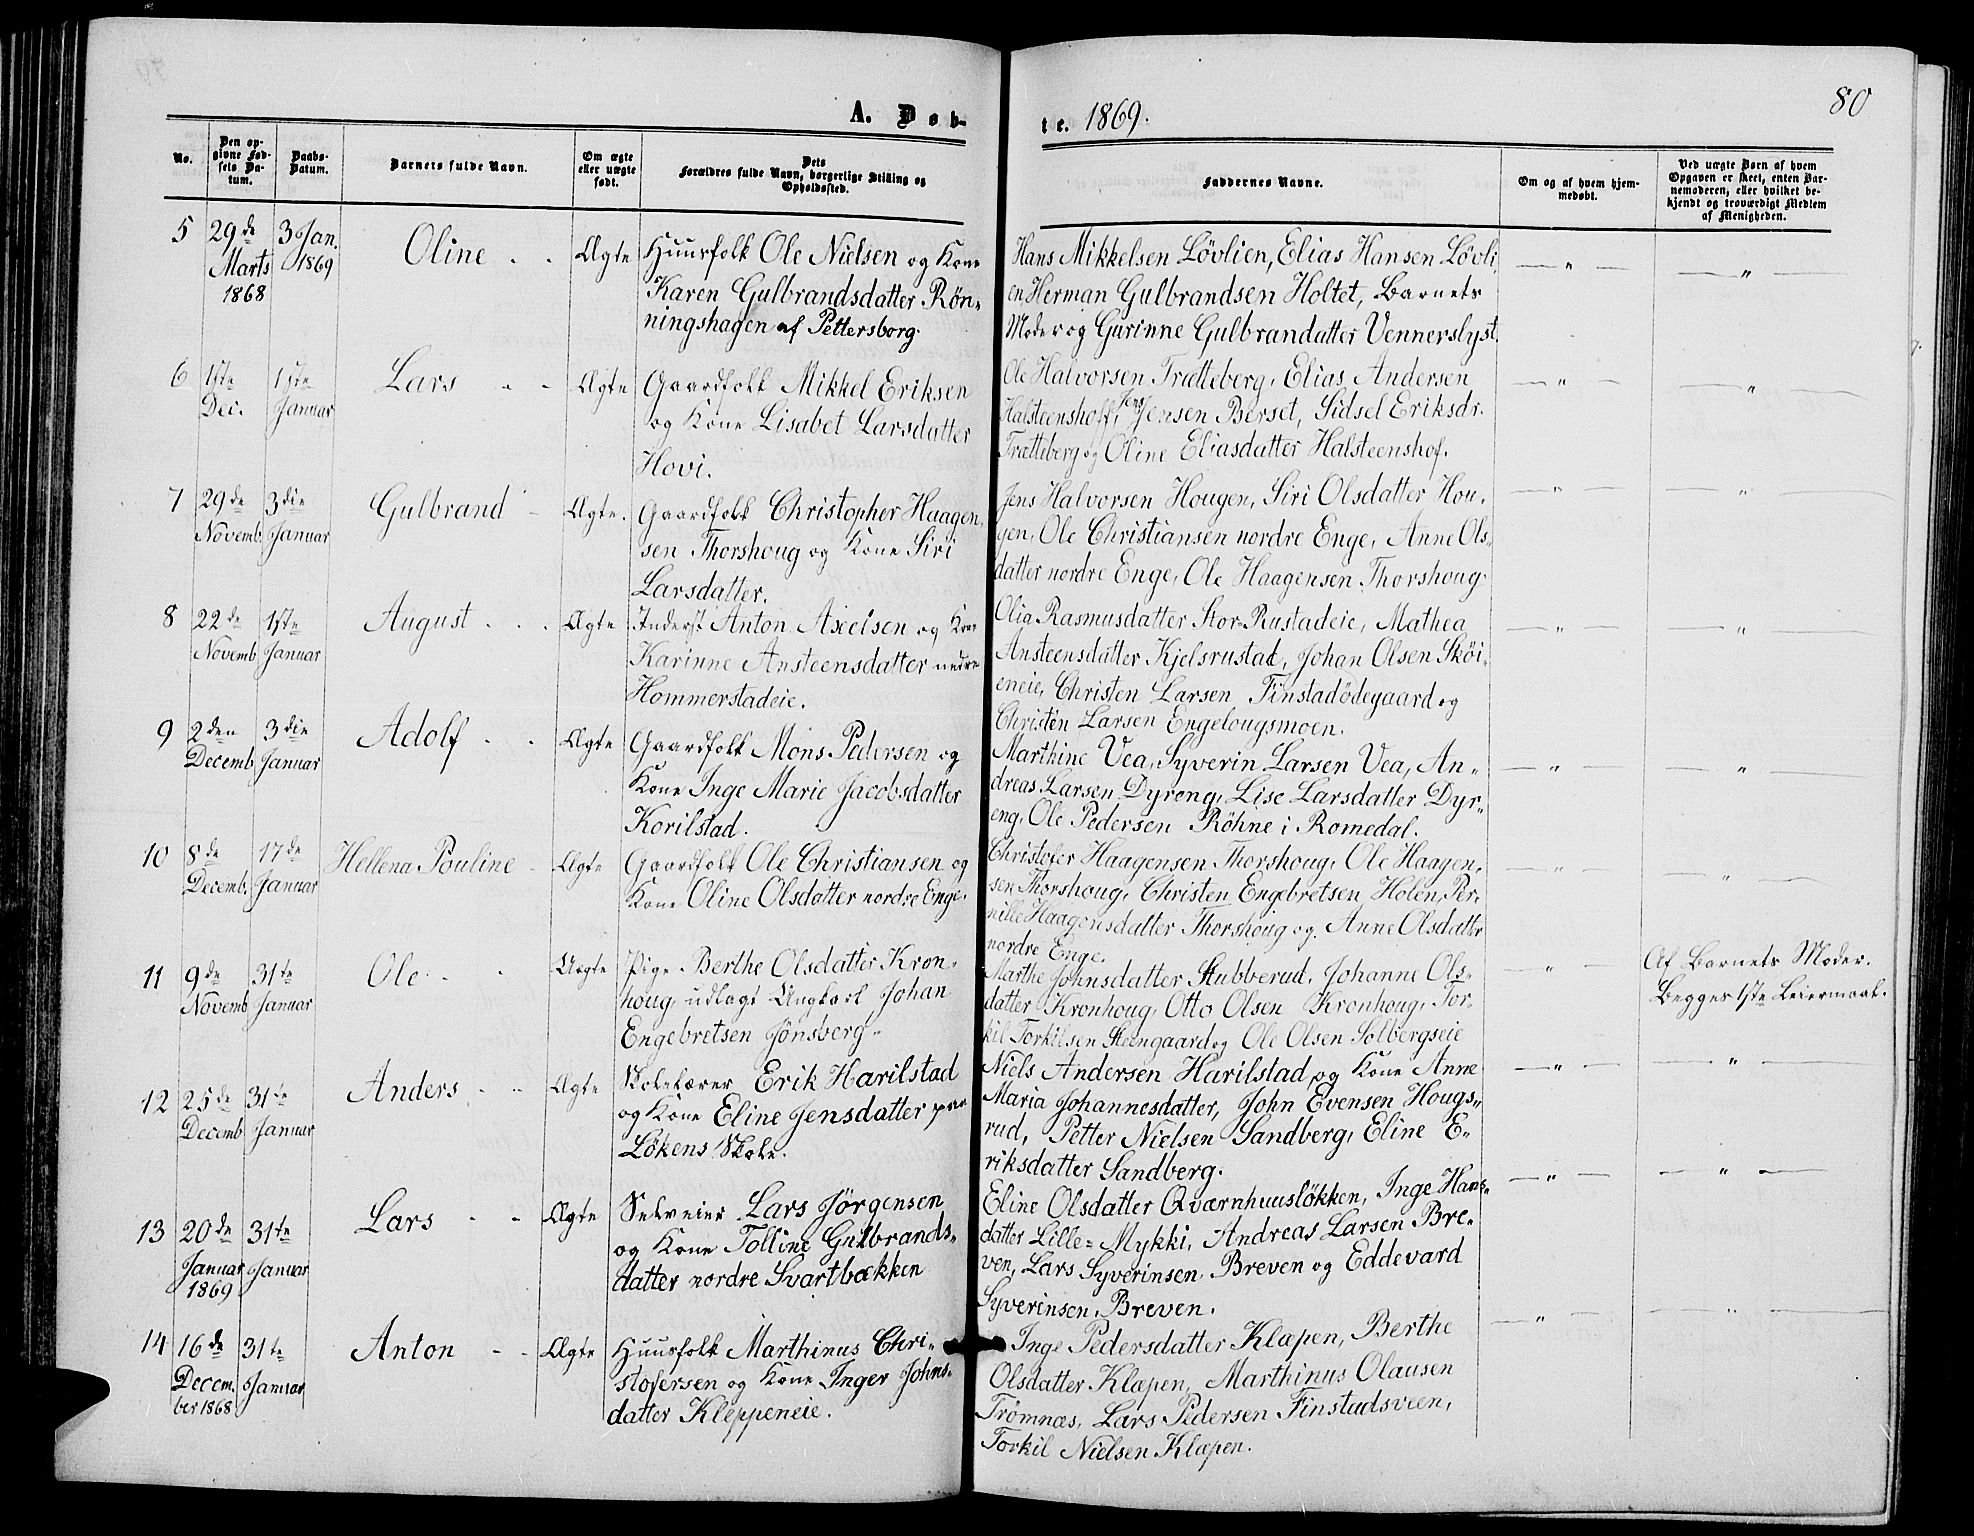 80
A. Døb-
te. 1869.
No.
Den op-
givne Fød-
sels Da-
tum.
Daabs-
Datum.
Barnets fulde Navn.
Om ægte
eller uægte
født.
Dets
Forældres fulde Navn, borgerlige Stilling og
Opholdssted.
Faddernes Navne.
Om og af hvem hjem-
medøbt.
Ved uægte Børn af hvem
Opgaven er skeet, enten Bar-
nemoderen, eller hvilket be-
kjendt og troværdigt Medlem
af Menigheden.
5 29de Marts 1868
3 Jan. 1869
Oline
Ægte
Huusfolk Ole Nielsen og Kone
Karen Gulbrandsdatter Røn-
ningshagen af Pettersborg.
Hans Mikkelsen Løvlien, Elias Hansen Løvli
en Herman Gulbrandsen Holtet, Barnets
Moder og Gurinne Gulbrandatter Vennerslyst.
6 1ste Dec.
1ste Januar
Lars
Ægte
Gaardfolk Mikkel Eriksen
og Kone Lisabet Larsdatter
Hovi.
Ole Halvorsen Trætteberg, Elias Andersen
Halsteenshoff, Jens Jensen Berset, Sidsel Eriksdr.
Trætteberg og Oline Eliasdatter Halsteenshof.
7 29de Novemb.
3die Januar
Gulbrand
Ægte.
Gaardfolk Christopher Haagen-
sen Thorshoug og Kone Siri
Larsdatter.
Jens Halvorsen Hougen, Siri Olsdatter Hou-
gen, Ole Christiansen nordre Enge, Anne Ols-
datter nordre Enge, Ole Haagensen Thorshoug.
8 22de Novemb.
1ste Januar
August
Ægte
Inderst Anton Axelsen og Kone
Karinne Ansteensdatter nedre
Hommerstadeie.
Olia Rasmusdatter Stor-Rustadeie, Mathea
Ansteensdatter Kjelsrustad, Johan Olsen Skøi-
eneie, Christen Larsen Finstadødegaard og
Christen Larsen Engelougsmoen.
9 2den Decemb.
3die Januar
Adolf
Ægte
Gaardfolk Mons Pedersen og
Kone Inge Marie Jacobsdatter
Korilstad.
Marthine Vea, Syverin Larsen Vea, An-
dreas Larsen Dyreng, Lise Larsdatter Dyr-
eng, Ole Pedersen Røhne i Romedal.
10 8de Decemb.
17de Januar
Hellena Pouline
Ægte
Gaardfolk Ole Christiansen og
Kone Oline Olsdatter nordre Enge.
Christofer Haagensen Thorshoug, Ole Haagen-
sen Thorshoug, Christen Engebretsen Holen, Per-
nille Haagensdatter Thorshoug og Anne Olsdatter
nordre Enge.
11 9de Novemb.
31te Januar
Ole
Uægte
Pige Berthe Olsdatter Kron-
houg, udlagt Ungkarl Johan
Engebretsen Jønsberg.
Marthe Johnsdatter Stubberud, Johanne Ols-
datter Kronhoug, Otto Olsen Kronhoug, Tor-
kil Torkilsen Steengaard og Ole Olsen Solbergseie
Af Barnets Moder.
Begges 1ste Leiermaal.
12 25de Decemb.
31te Januar
Anders
Ægte
Skolelærer Erik Harilstad
og Kone Eline Jensdatter paa
Løkens Skole.
Niels Andersen Harilstad og Kone Anne
Maria Johannesdatter, John Evensen Hougs-
rud, Petter Nielsen Sandberg, Eline E-
riksdatter Sandberg.
13 20de Januar 1869
31te Januar
Lars
Ægte
Selveier Lars Jørgensen
og Kone Tolline Gulbrands-
datter nordre Svartbækken
Eline Olsdatter Qværnhuusløkken, Inge Hans-
datter Lille-Mykki, Andreas Larsen Bre-
ven, Lars Syverinsen Breven og Eddevard
Syverinsen Breven.
14 16de Decem-
ber 1868
31te Januar
Anton
Ægte
Huusfolk Marthinus Chri-
stofersen og Kone Inger Johns-
datter Kleppeneie.
Inge Pedersdatter Klæpen, Berthe
Olsdatter Klæpen, Marthinus Olausen
Trømnæs, Lars Pedersen Finstadsveen,
Torkil Nielsen Klæpen.